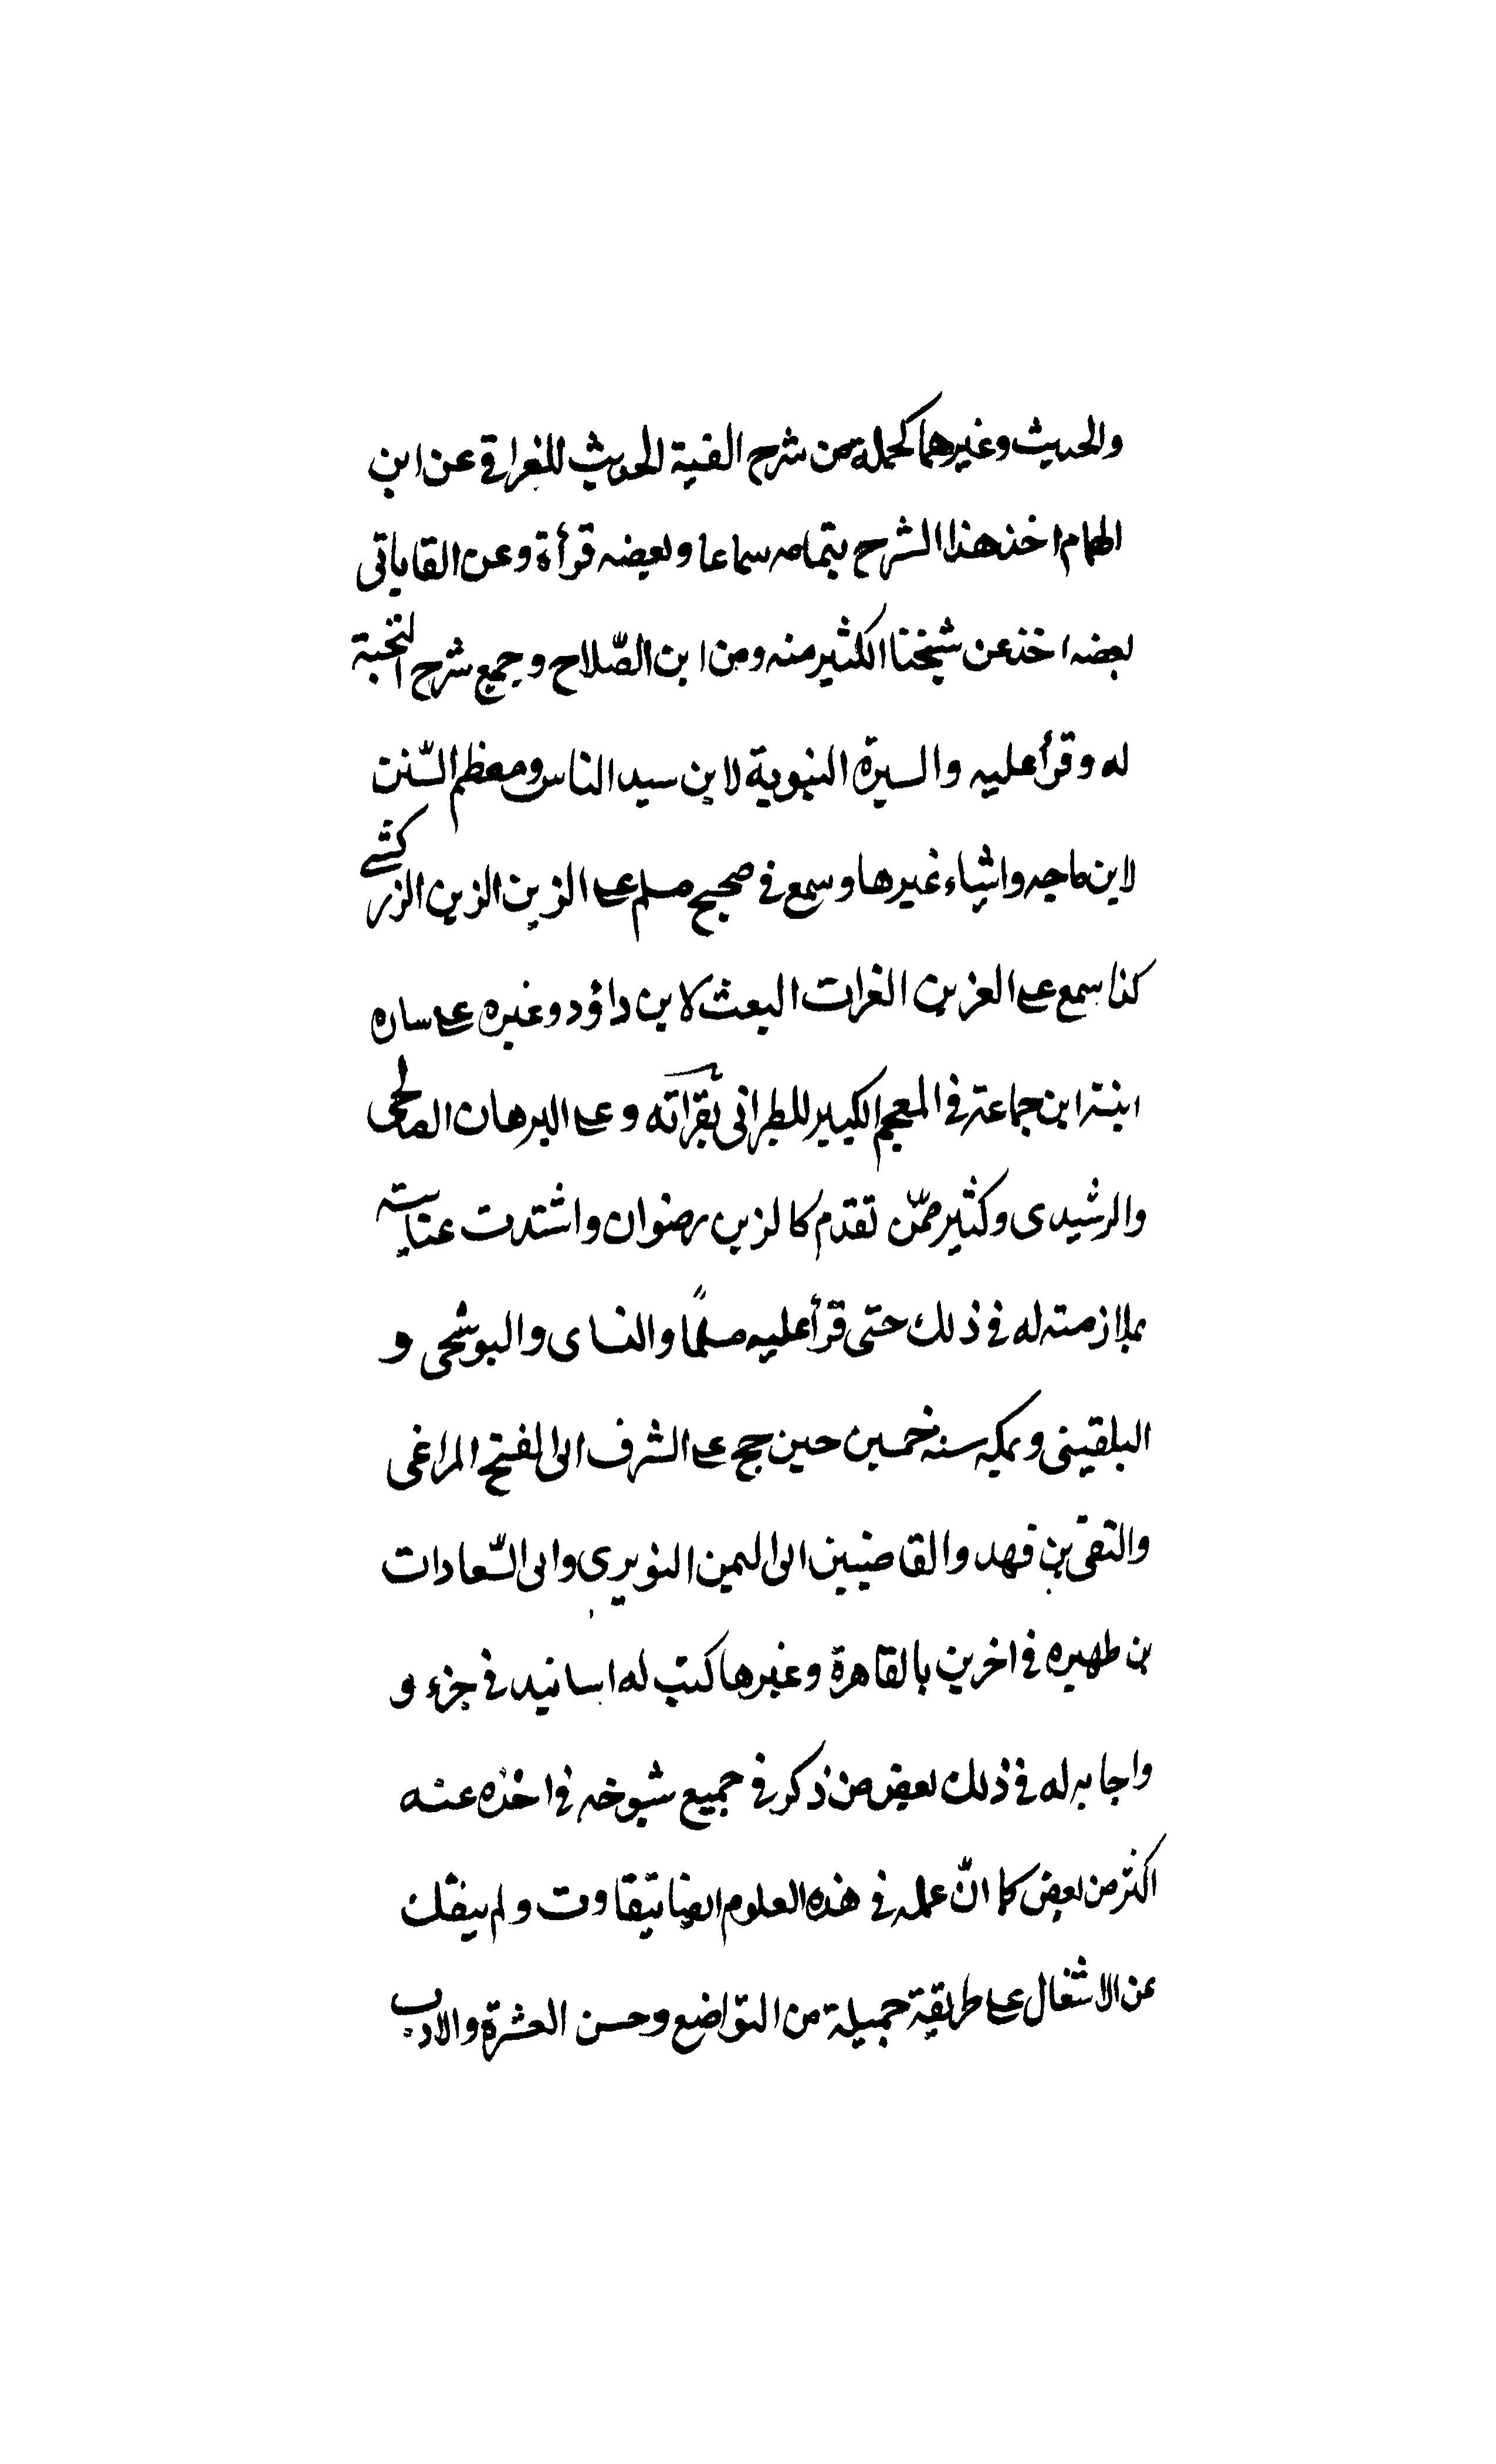 والحديث وغيرهما كجملة من شرح الفية الحديث للغراقي عن ابن
الهمام اخذ هذا الشرح بتمامه سماعا وبعضه قرأة وعن القاياتي
بعضه اخذ عن شيخنا الكثير منه ومن ابن الصّلاح وجميع شرح النخبة
له وقرأ عليه والسيرة النبوية لابن سيد الناس ومعظم السّنن
لابن ماجه واشياء غيرها وسمع في صحيح مسلم على الزين الزين الزركشي
كنا سمع على العز بن الفرات البعث لابن داؤد وغيره على ساره
ابنة ابن جماعة في المعجم الكبير للطبراني بقراته وعلى البرهان الصالحي
والرشيدى وكثير ممّن تقدم كالزين رضوان واشتدت عنايته
بملازمته له في ذلك حتى قرأ عليه مسلمًا والنساى والبوشحى و
البلقيني وبمكه سنه خمسين حين حج على الشرف ابى الفتح المراغى
والتقى بن فهد والقاضيين ابى اليمن النويري وابى السّعادات
بن ظهيره في اخرين بالقاهرة وغيرها كتب له اسانيد في جزء و
واجابه له في ذلك بعض من ذكر في جميع شيوخه في اخذه عنه
اكثر من بعض كما انّ عمله في هذه العلوم ايضا يتفاوت ولم ينفك
عن الاشتغال على طريقة جميلة من التواضع وحسن العشرة والادب